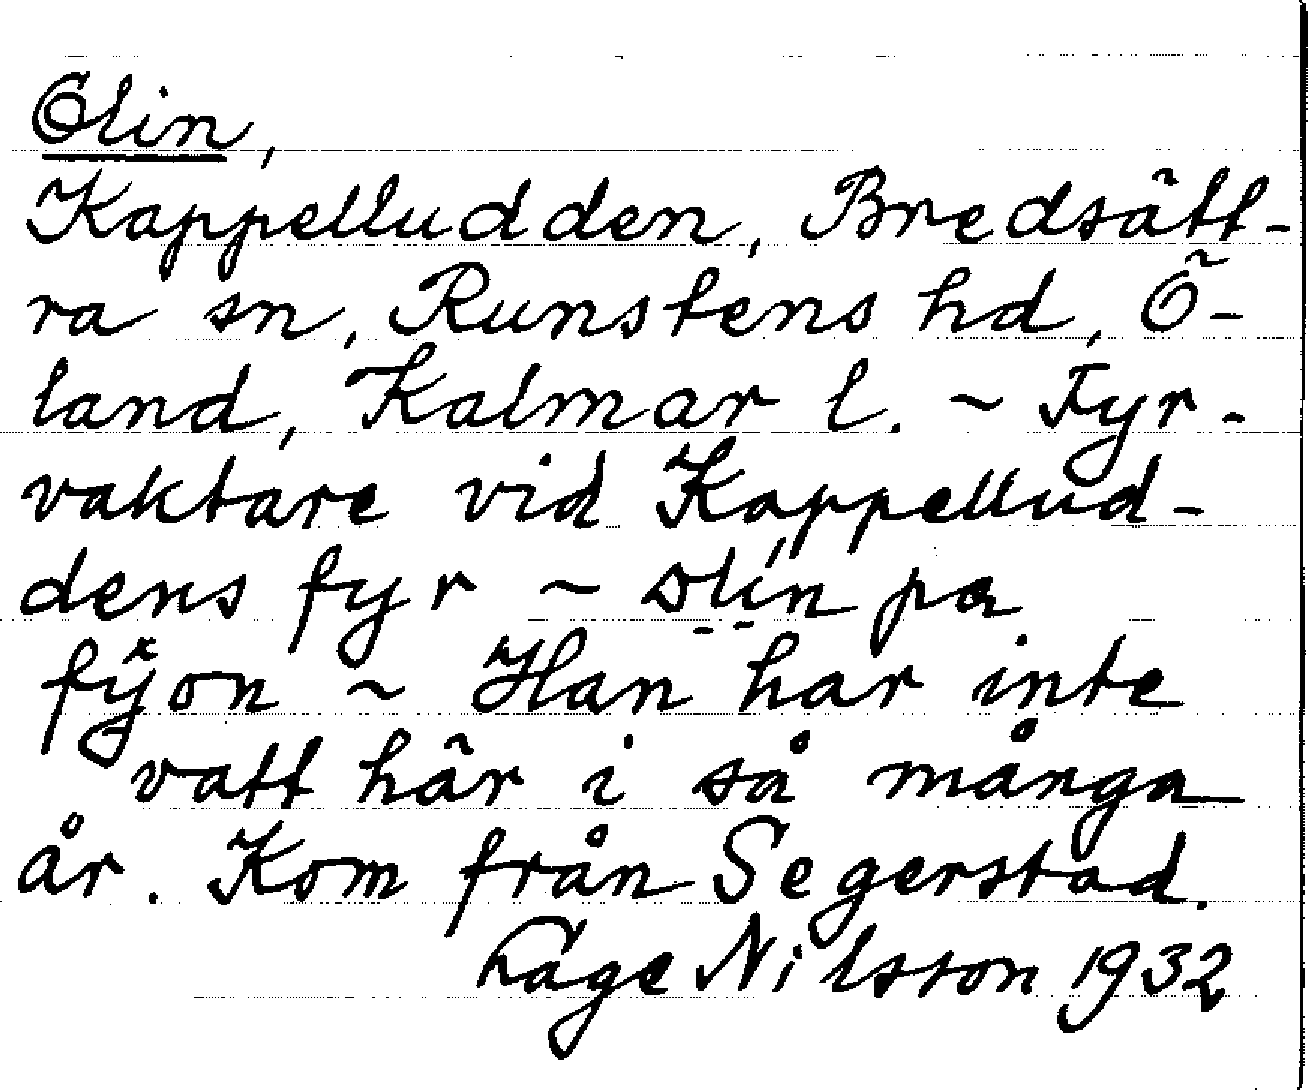 Olin,
Kappelludden, Bredsätt-
ra sn, Runstens hd, Ö-
land, Kalmar l. ~ Fyr-
vaktare vid Kappellud-
dens fyr ~ olín pa
fÿon ~ Han har inte
vatt här i så många
år. Kom från Segerstad.
Lage Nilsson 1932